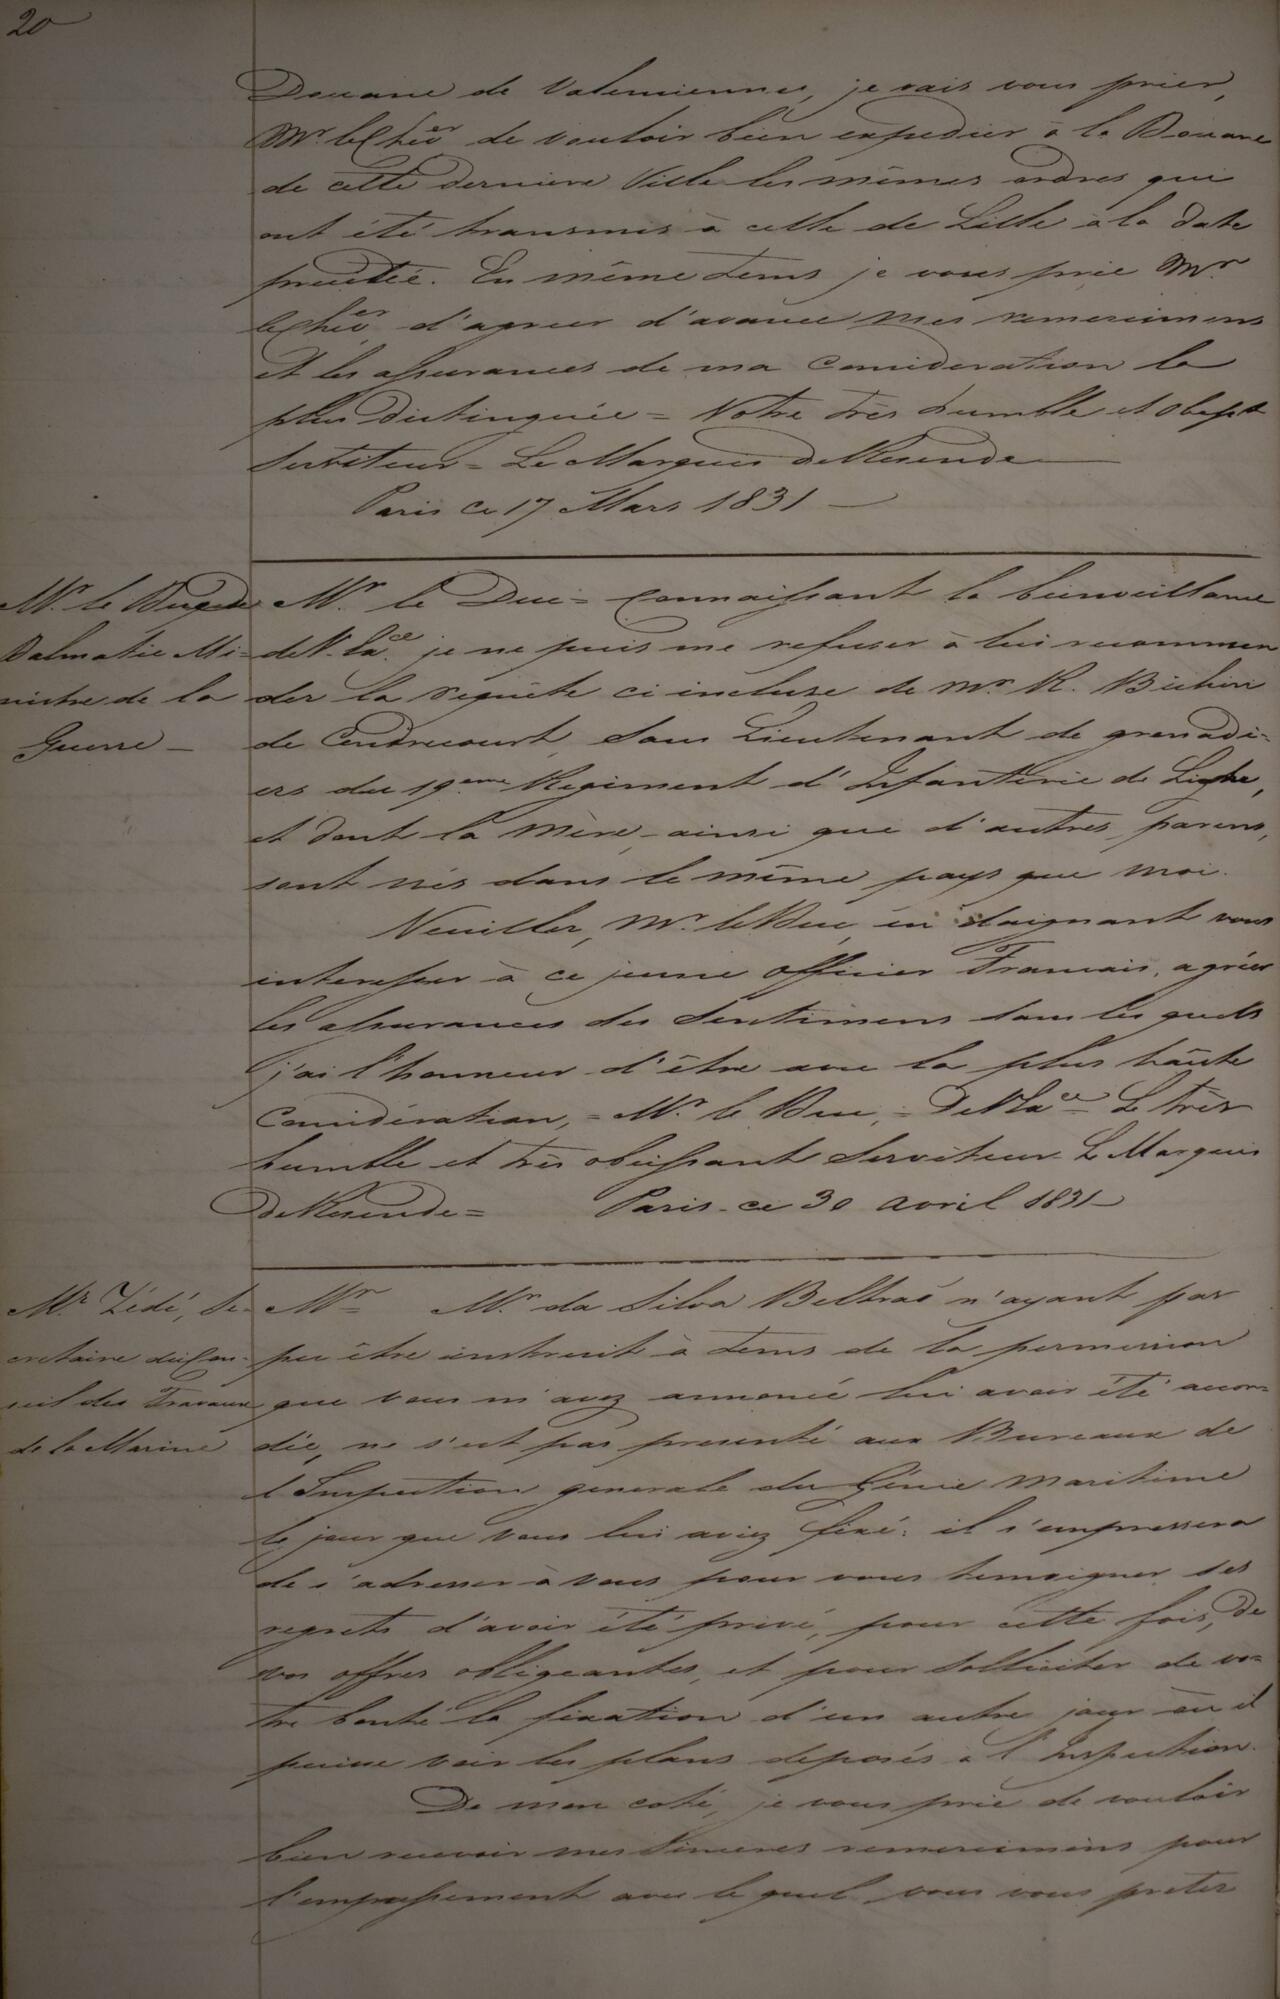 20
Douane de Valenciennes, je vais vous prier,
Mr. le Chev.er de vouloir bien expedier à la Douane
de cette derniere Ville les mêmes ordres qui
ont été transmis à celle de Lille à la date
precitée. En même tems je vous prie Mr.
le Chev.er d'agreer d'avance mes remercimens
et les assurances de ma consideration la
plus distinguée = Votre très humble et obeist
Serviteur = Le Marquis de Resende
Paris ce 17 Mars 1831 —
Mr. le Duc de
Dalmatie Mi-
nistre de la
Guerre —
Mr. le Duc = Connaissant la bienveillance
de V. Ex.ce je ne puis me refuser à lui recomman
der la requête ci incluse de Mr. R. Bichin
de Cendrecourt Sous Lieutenant de grenadi-
ers du 19eme Regiment d'Infanterie de Ligne,
et dont la mère, ainsi que d'autres parens,
sont nés dans le même pays que moi.
Veuillez, Mr. le Duc, en daignant vous
interesser à ce jeune officier Francais, agréer
les assurances des sentimens dans les quels
j'ai l'honneur d'être avec la plus hâute
consideration, = Mr. le Duc, = De V. Ex.ce = Le très
humble et très obeissant Serviteur = Le Marquis
de Resende = Paris ce 30 avril 1831 —
Mr. Zédé, Se-
cretaire du Con-
seil des Travaux
de la Marine
Mr = Mr. da Silva Beltraõ n'ayant pas
pu être instruit à tems de la permission
que vous m'avez annoncé lui avoir été accor-
dée, ne s'est pas presenté aux Bureaux de
l'Inspection generale du Génie maritime
le jour que vous lui aviez fixé: il s'empressera
de s'adresser à vous pour vous temoigner ses
regrets d'avoir été privé, pour cette fois, de
vos offres obligeantes, et pour solliciter de vo-
tre bonté la fixation d'un autre jour où il
puisse voir les plans deposés à l'Inspection.
De mon coté, je vous prie de vouloir
bien recevoir mes sinceres remercimens pour
l'empressement avec le quel vous vous preter